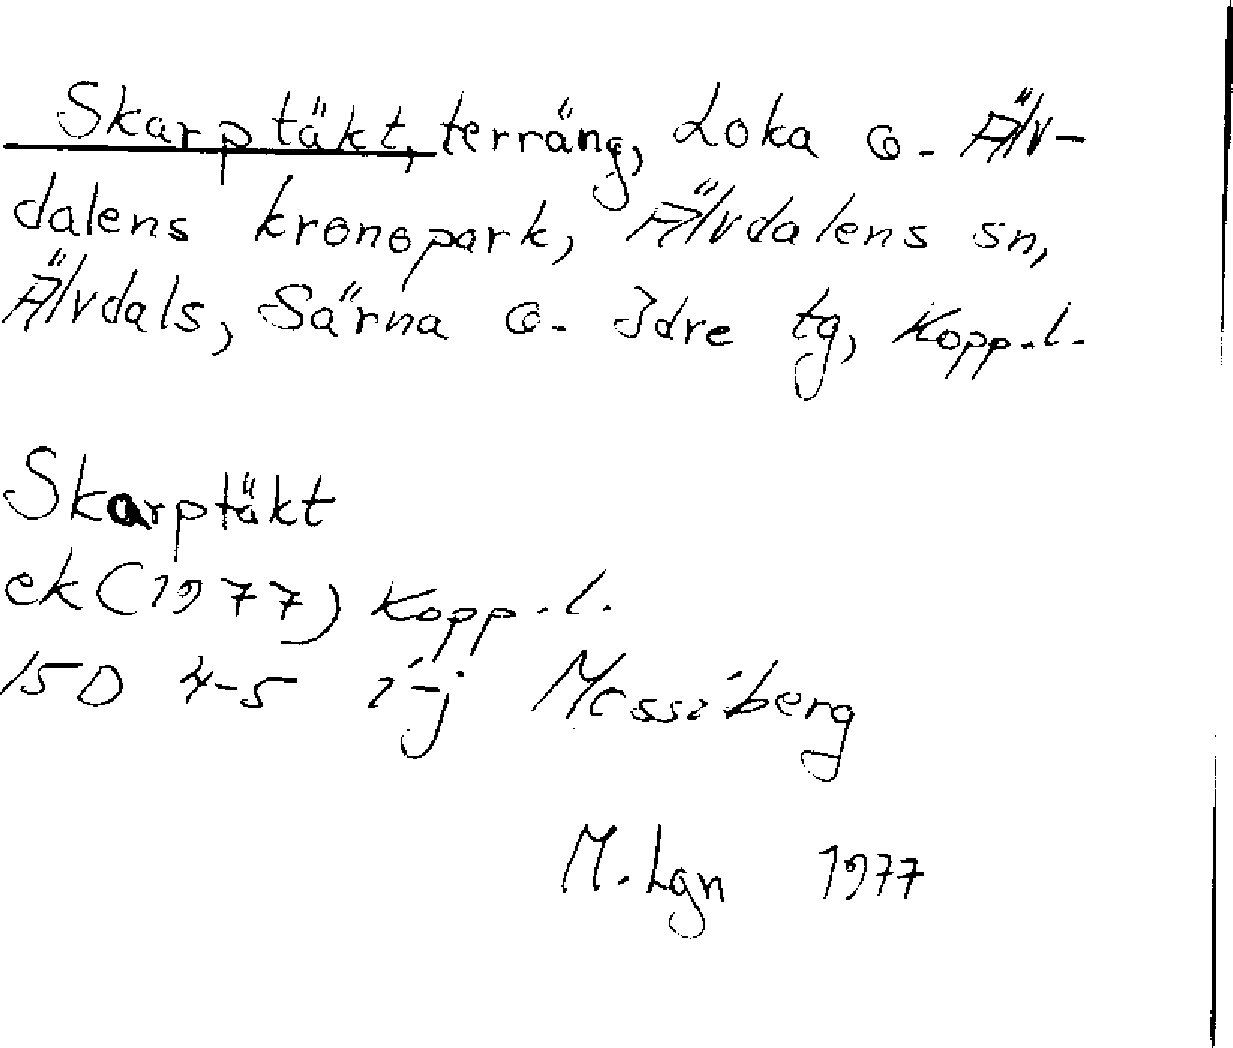 Skarptäkt, terräng, Loka o. Älv-
dalens kronopark, Älvdalens sn,
Älvdals, Särna o. Idre tg, Kopp.l.
Skarptäkt
ek (1977) Kopp.l.
15D 4-5 i-j Messiberg
M. Lgn 1977